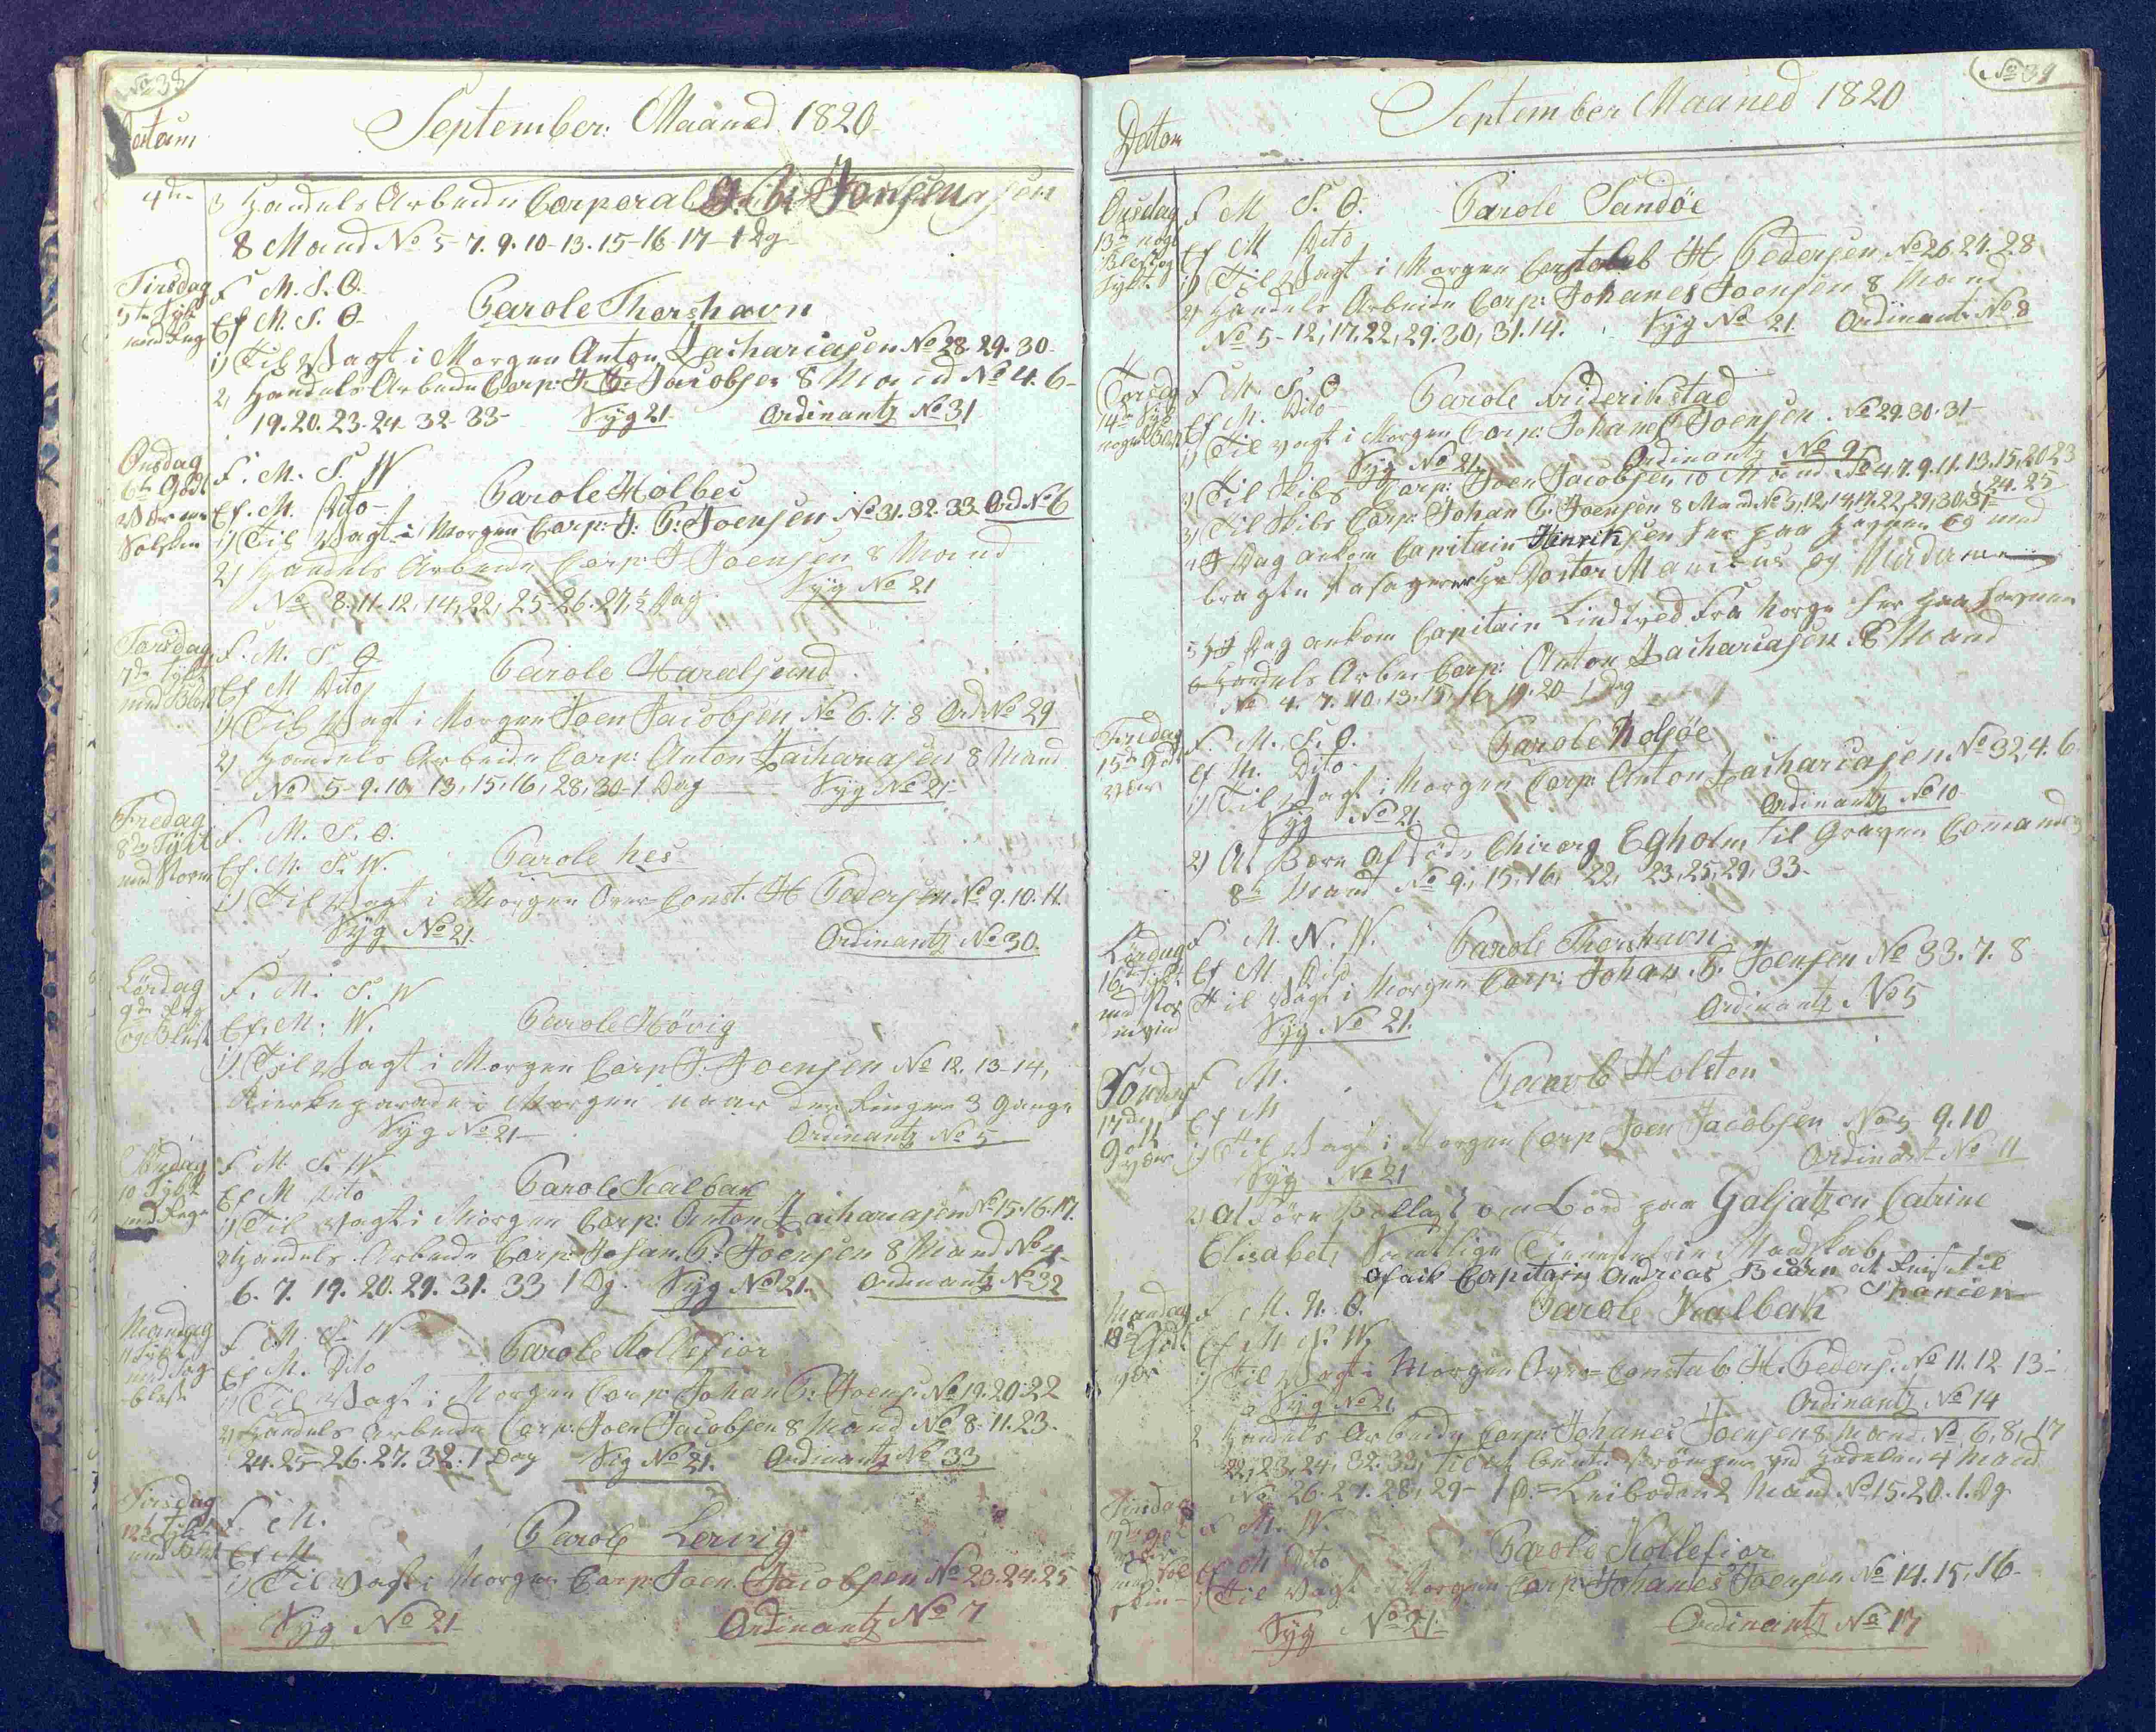 No 38
Datum
September Maaned 1820
4de 3 Handels Arbeide Corporal
8 Mand No 5-7.9.10-13.15-16-17-1 Dg
Tirsdag F M. S. O.
5te Tykt Ef M. S. O. Parole Thorshavn
med Regn 1) Til Vagt i Morgen Anton Zachariasen No 28.29.30
2, Handels Arbeide Corp: J. Jacobsen 8 Mand No 4. 6-
19.20.23.24 32-33- Syg 21 Ordinantz No 31
Onsdag F. M. S. W
6te Godt Ef. M. Dito Parole Holbec
1) Til Vagt i Morgen Corp: J. P: Joensen No 31.32.33 Ord. No 6
Solskin 2) Handels Arbeide Corp J Joensen 8 Mand
No 8.11-12,14,22,25-26.27, ½ Dag Syg No 21
Torsdag F. M. S. O.
7de Tykt Ef M Dito Parole Haralsund
med Blæst 1) Til Vagt i Morgen Joen Jacobsen No 6.7.8 Ord No 29
2) Handels Arbeide Corp: Anton Zachariasen 8 Mand
No 5-9.10, 13,15,16,28,30-1 Dag Syg No 21
Fredag F. M. S. O.
8de Tykt Ef. M. S. W. Parole Nes
med Storm 1) Til Vagt i Morgen Over Const. H Pedersen No 9.10.11.
Syg No 21 Ordinantz No 30.
Lørdag F. M. S. W
9de Regn Ef. M. W. Parole Hövig
og Blæst 1) Til Vagt i Morgen Corp J. Joensen No 12. 13-14,
Kierkeparade i Morgen naar der Ringer 3 Gange
Syg No 21 Ordinantz No 5
Söndag F M S. W.
10 Tykt Ef M Dito Parole Kalbak
med Regn 1) Til Vagt i Morgen Corp: Anton Zachariasen No 15.16.17.
2 Handels Arbeide Corp: Johan P. Joensen 8 Mand No 4-
6. 7. 19. 20. 29. 31. 33 1 Dg. Syg No 21. Ordinantz No 32
Mandag F M S. W
11 Tykt Ef M. Dito Parole Kollefior
1) Til Vagt i Morgen Corp: Johan P: Joens. No 19.20.22
blæst 2) Handels Arbeide Corp: Joen Jacobsen 8 Mand No 8.11.23.
24.25-26.27.32.1 Dag Syg No 21. Ordinantz No 33
Tirsdag F M.
12te Tykt Ef M Parole Lervig
1) Til Vagt i Morgen Corp: Joen Jacobsen No 23.24.25
Syg No 21 Ordinantz No 7
No 39
Datom
September Maaned 1820
Onsdag F M S. O. Parole Sandöe
13de noget Ef M Dito
Blæst og 1) Til Vagt i Morgen H. Pedersen No 26 27.28
Tykt 2) Handels Arbeide Corp: Johanes Joensen 8 Mand
No 5-12,17,22,29.30,31.14. Syg No 21. Ordinantz No 8
Torsdag F M. S. O
14de Tykt Ef M. Dito Parole Friderikstad
1) Til Vagt i Morgen Corp: Johanes Joensen. No 29.30.31-
Syg No 21 Ordinantz No 9
2) Til Skibs Corp: Joen Jacobsen 10 Mand No 4.7.9.11.13.15,20,23
24. 25
3) Til Skibs Corp: Johan P. Joensen 8 Mand No 5,12,14,17,22,29,30,31-
4 I Dag ankom Capitain Hinriksen her paa Havnen og med
bragte Pasagerer Madame
5 I Dag ankom Capitain Lindtved fra Norge her paa Havnen
6 Handels Arbei Corp: Anton Zachariasen 8 Mand
No 4. 7. 10.13.15,16,19.20-1 Dag
Fredag F. M. S. O. Parole Nolsöe
15de Godt Ef M. Dito
vær 1) Til Vagt i Morgen Corp: Anton Zachariasen No 32,4.6
Syg No 21. Ordinantz No 10
2) At Bære afdöde Chirorg Egholm til Graven
8te Mand No 9,15,16, 22, 23,25,29,33-
Lördag F M. N. W. Parole Thorshavn
16 Tykt Ef M Dito
Til Vagt i Morgen Corp: Johan P. Joensen No 33.7.8
Syg No 21. Ordinantz No 5
Söndag F M. Parole Holsten
17de Ef M
Godt 1) Til Vagt i Morgen Corp Joen Jacobsen No 5 9.10
vær Syg No 21 Ordinantz No 11
2) At före Ballast om Bord paa Galjatzen Catrine
Elisabet, Samtlige Mandskab
Capitain Andreas at Reise til
Spanien
Mandag F M. N. O. Parole Kalbak
18de Godt Ef M N. W.
vær 1) Til Vagt i Morgen Over-Constab H. Peders. No 11.12 13-
Syg No 21 Ordinantz No 14
2 Handels Arbeide Corp: Johanes Joensen 8 Mand No 6,8,17
22,23,24,32.33, Til at 4 Mand
No 26.27.28,29- 1 D. 2 Mand No 15.20.1.Dg
Tirsdag F M. W.
19de Godt Ef M Dito Parole Kollefior
1) Til Vagt i Morgen Corp: Johanes Joensen No 14.15,16-
Syg No 21- Ordinantz No 17